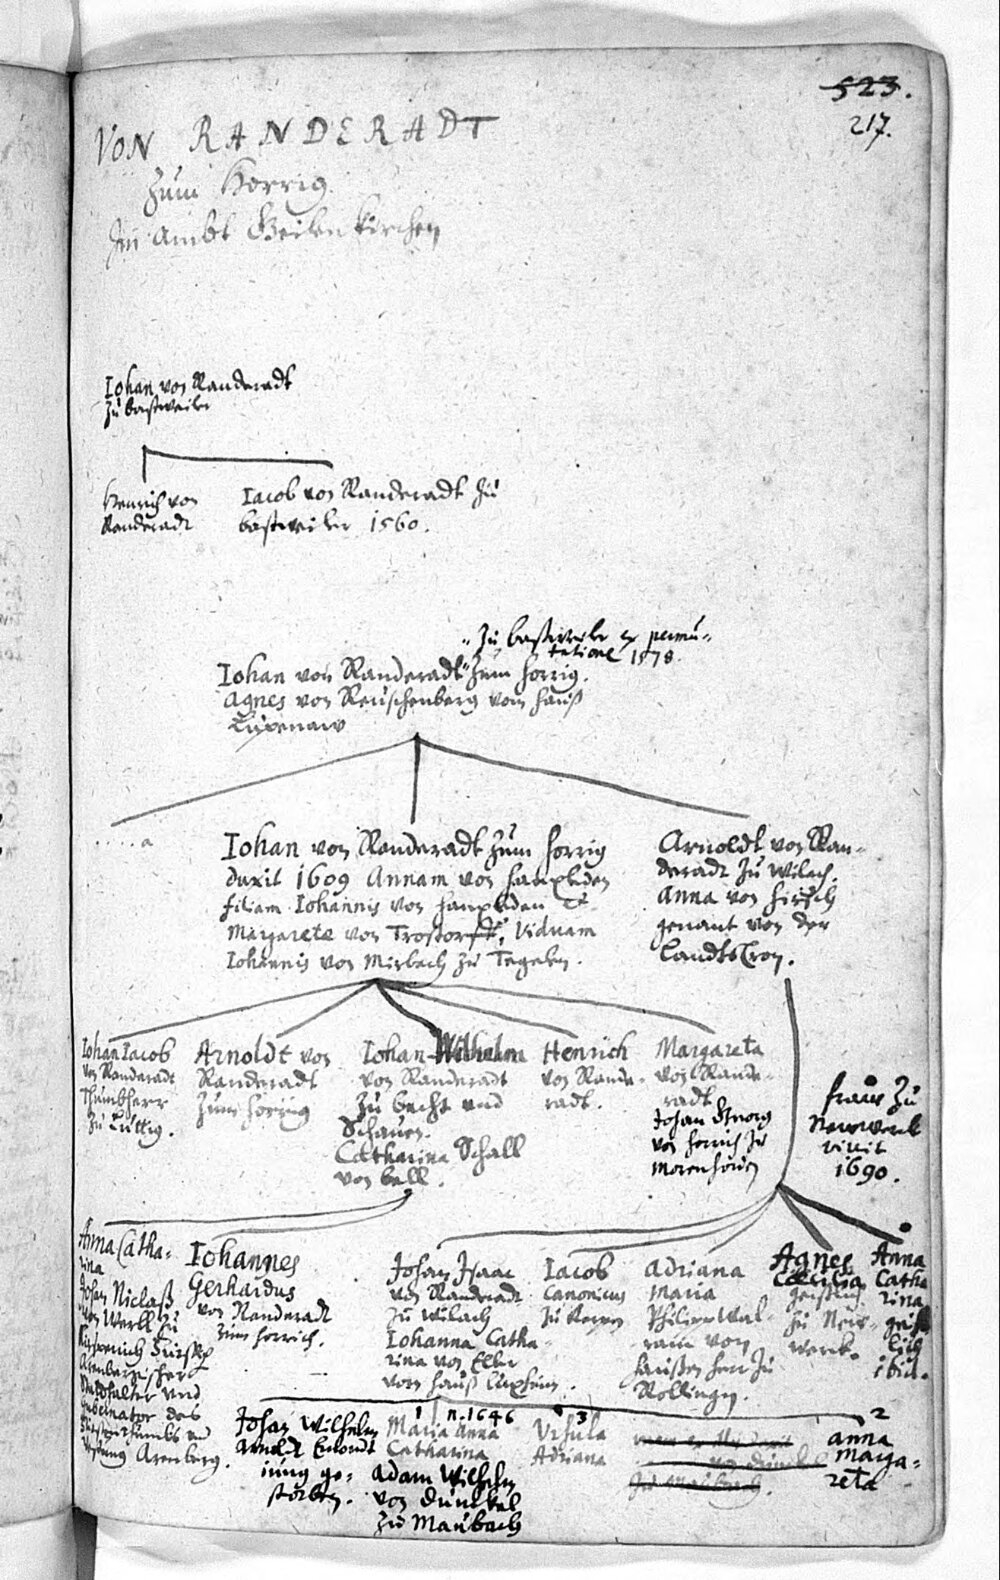 523.
217.
VON RANDERADT
zum Horrig
Im Ambt Geilenkirchen
Iohan von Randeradt
zu bastweiler
Henrich von
Randeradt
Iacob von Randeradt zu
bastweiler 1560.
"zu bastweiler ex permu-
tatione 1578.
Iohan von Randeradt" zum horrig.
Agnes von Reuschenberg vom hauß
Lüxenaw
.....a
Iohan von Randeradt zum horrig
duxit 1609 Annam von
filiam Iohannis von
Margarete von Trostorff, Viduam
Iohannis von Mirbach zu Tegelen.
Arnoldt von Ran-
deradt zu Wilach.
Anna von hirsch
genant von der
LandtsCron.
Iohan Iacob
von Randeradt
Thumbherr
zu Lüttig.
Arnoldt von
Randeradt
zum horrig
Iohan Wilhelm
von Randeradt
zu becht und
Schauen.
Catharina Schall
von bell.
Henrich
von Rande-
radt.
Margareta
von Rande-
radt
Johan Georg
von horrich zu
Morenhoven
fraw zu
Newwerk
vixit
1690.
Anna Catha-
rina
Johan Niclaß
von Werll zu
Arenbergischer
Statthalter und
Gubernator des
Arenberg.
Iohannes
Gerhardus
von Randeradt
zum horrich.
Johan Isaac
von Randeradt
zu Wilach
Iohanna Catha-
rina von Eller
vom hauß
Iacob
Canonicus
zu Kerpen
Adriana
Maria
Philips Wal-
ram von
herr zu
Rollingen.
Agnes
Cæcilia
geistlich
zu New-
werk.
Anna
Catha
rina
geist
lich
ibid.
Johan Wilhelm
Arnoldt
iung ge-
storben.
1 n. 1646
Maria Anna
Catharina
Adam Wilhelm
von Dunckel
zu Maubach
3
Ursula
Adriana
2
anna
marga-
reta